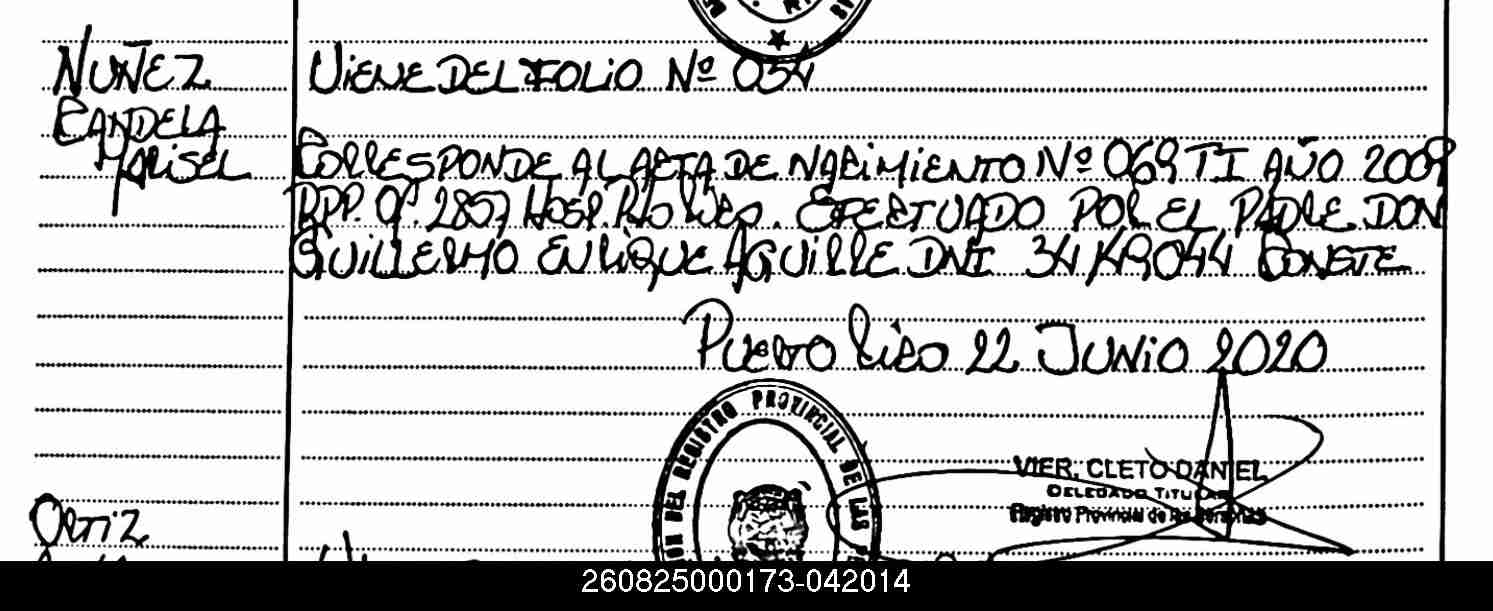 NUÑEZ
CANDELA
MARISEL
VIENE DEL FOLIO Nº 034
CORRESPONDE AL ACTA DE NACIMIENTO Nº 069 TI AÑO 2009
DPP. Of. 2857 HOSP. Pto Rico. EFECTUADO POR EL PADRE DON
GUILLERMO ENRIQUE AGUIRRE DNI 34149044 CONSTE
PUERTO RICO 22 JUNIO 2020
DEL REGISTRO PROVINCIAL DE LAS
VIER, CLETO DANIEL
DELEGADO TITULAR
Registro Provincial de las Personas
ORTIZ
260825000173-042014